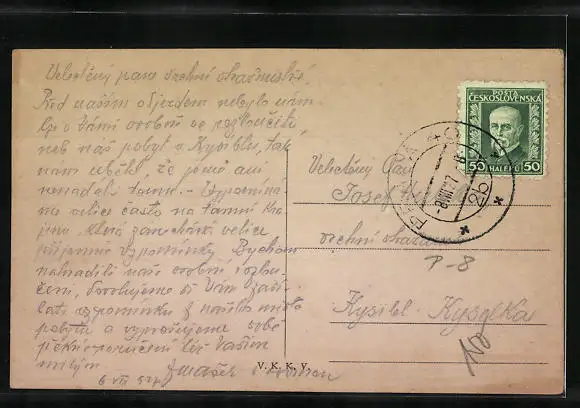 Velectěný pane vrchní
Před naším odjezdem nebylo nám
lze s Vámi osobně se rozloučiti
neb náš pobyt v Kysiblu, tak
nám uběhl, že jsme ani
nenadáli tomu. Vzpomíná-
me velice často na tamní kra-
jinu, která zanechává velice
příjemné vzpomínky. Bychom
nahradili naše osobní rozlou-
čení, dovolujeme si Vám zasí-
lati vzpomínku z našeho místa
pobytu a vyprošujeme sobě
pěkné poručení též Vašim
milým
6 VII 927
V. K. K. V.
POŠTA
ČESKOSLOVENSKÁ
50 HALÉŘŮ 50
PRAHA
-8.VII.27
2b
Velectěný Pan
Josef
vrchní
P-8
Kysibl - Kyselka